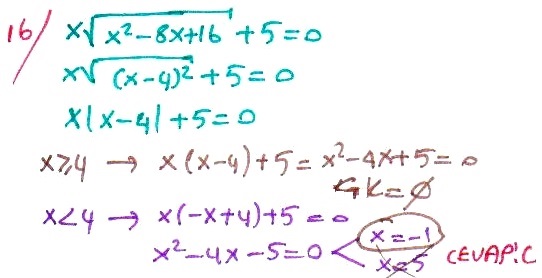 16/ x√(x²-8x+16) +5=0
x√((x-4)²) +5=0
x|x-4|+5=0
x≥4 → x(x-4)+5=x²-4x+5=0
ÇK=∅
x<4 → x(-x+4)+5=0
x²-4x-5=0 < x=-1
x=5 CEVAP:C